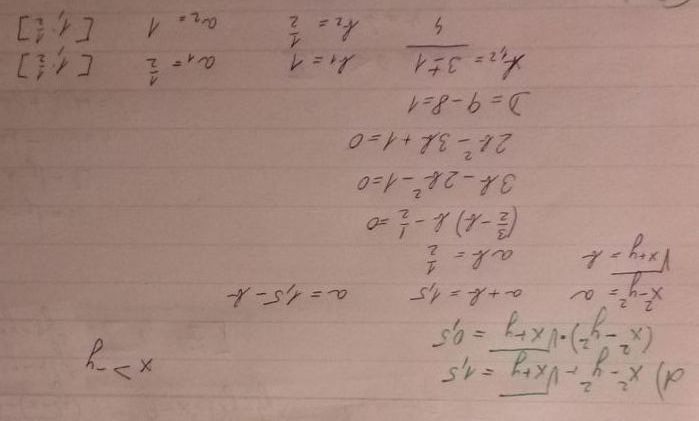 d) x²-y²+√(x+y) = 1,5
(x²-y²)·√(x+y) = 0,5
x > -y
x²-y² = a a+b = 1,5 a = 1,5-b
√(x+y) = b ab = 1/2
(3/2-b) b - 1/2 = 0
3b - 2b² - 1 = 0
2b² - 3b + 1 = 0
D = 9-8 = 1
b₁,₂ = (3±1)/4 b₁ = 1 a₁ = 1/2 [1, 1/2]
b₂ = 1/2 a₂ = 1 [1, 1/2]